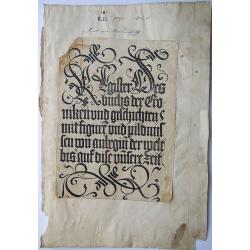 Register Des
buchs der Cro
niken und geschichten
mit figurẽ und pildnus
sen von anbegiñ der welt
bis auf dise unsere Zeit